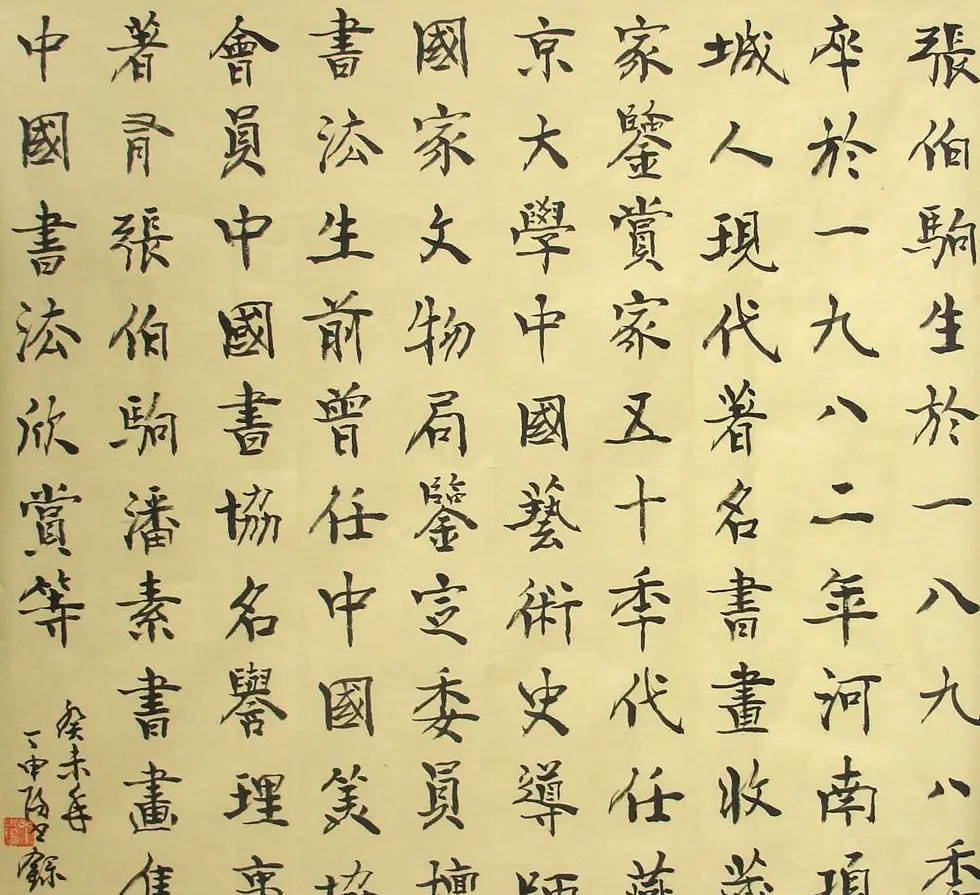 張伯駒生於一八九八秊
卒於一九八二年河南項
城人現代著名書畫收藏
家鑒賞家五十秊代任燕
京大學中國藝術史導師
國家文物局鑒定委員
書法生前曾任中國美協
會員中國書協名譽理事
著有張伯駒潘素書畫集
中國書法欣賞等
癸未年
丁申陽